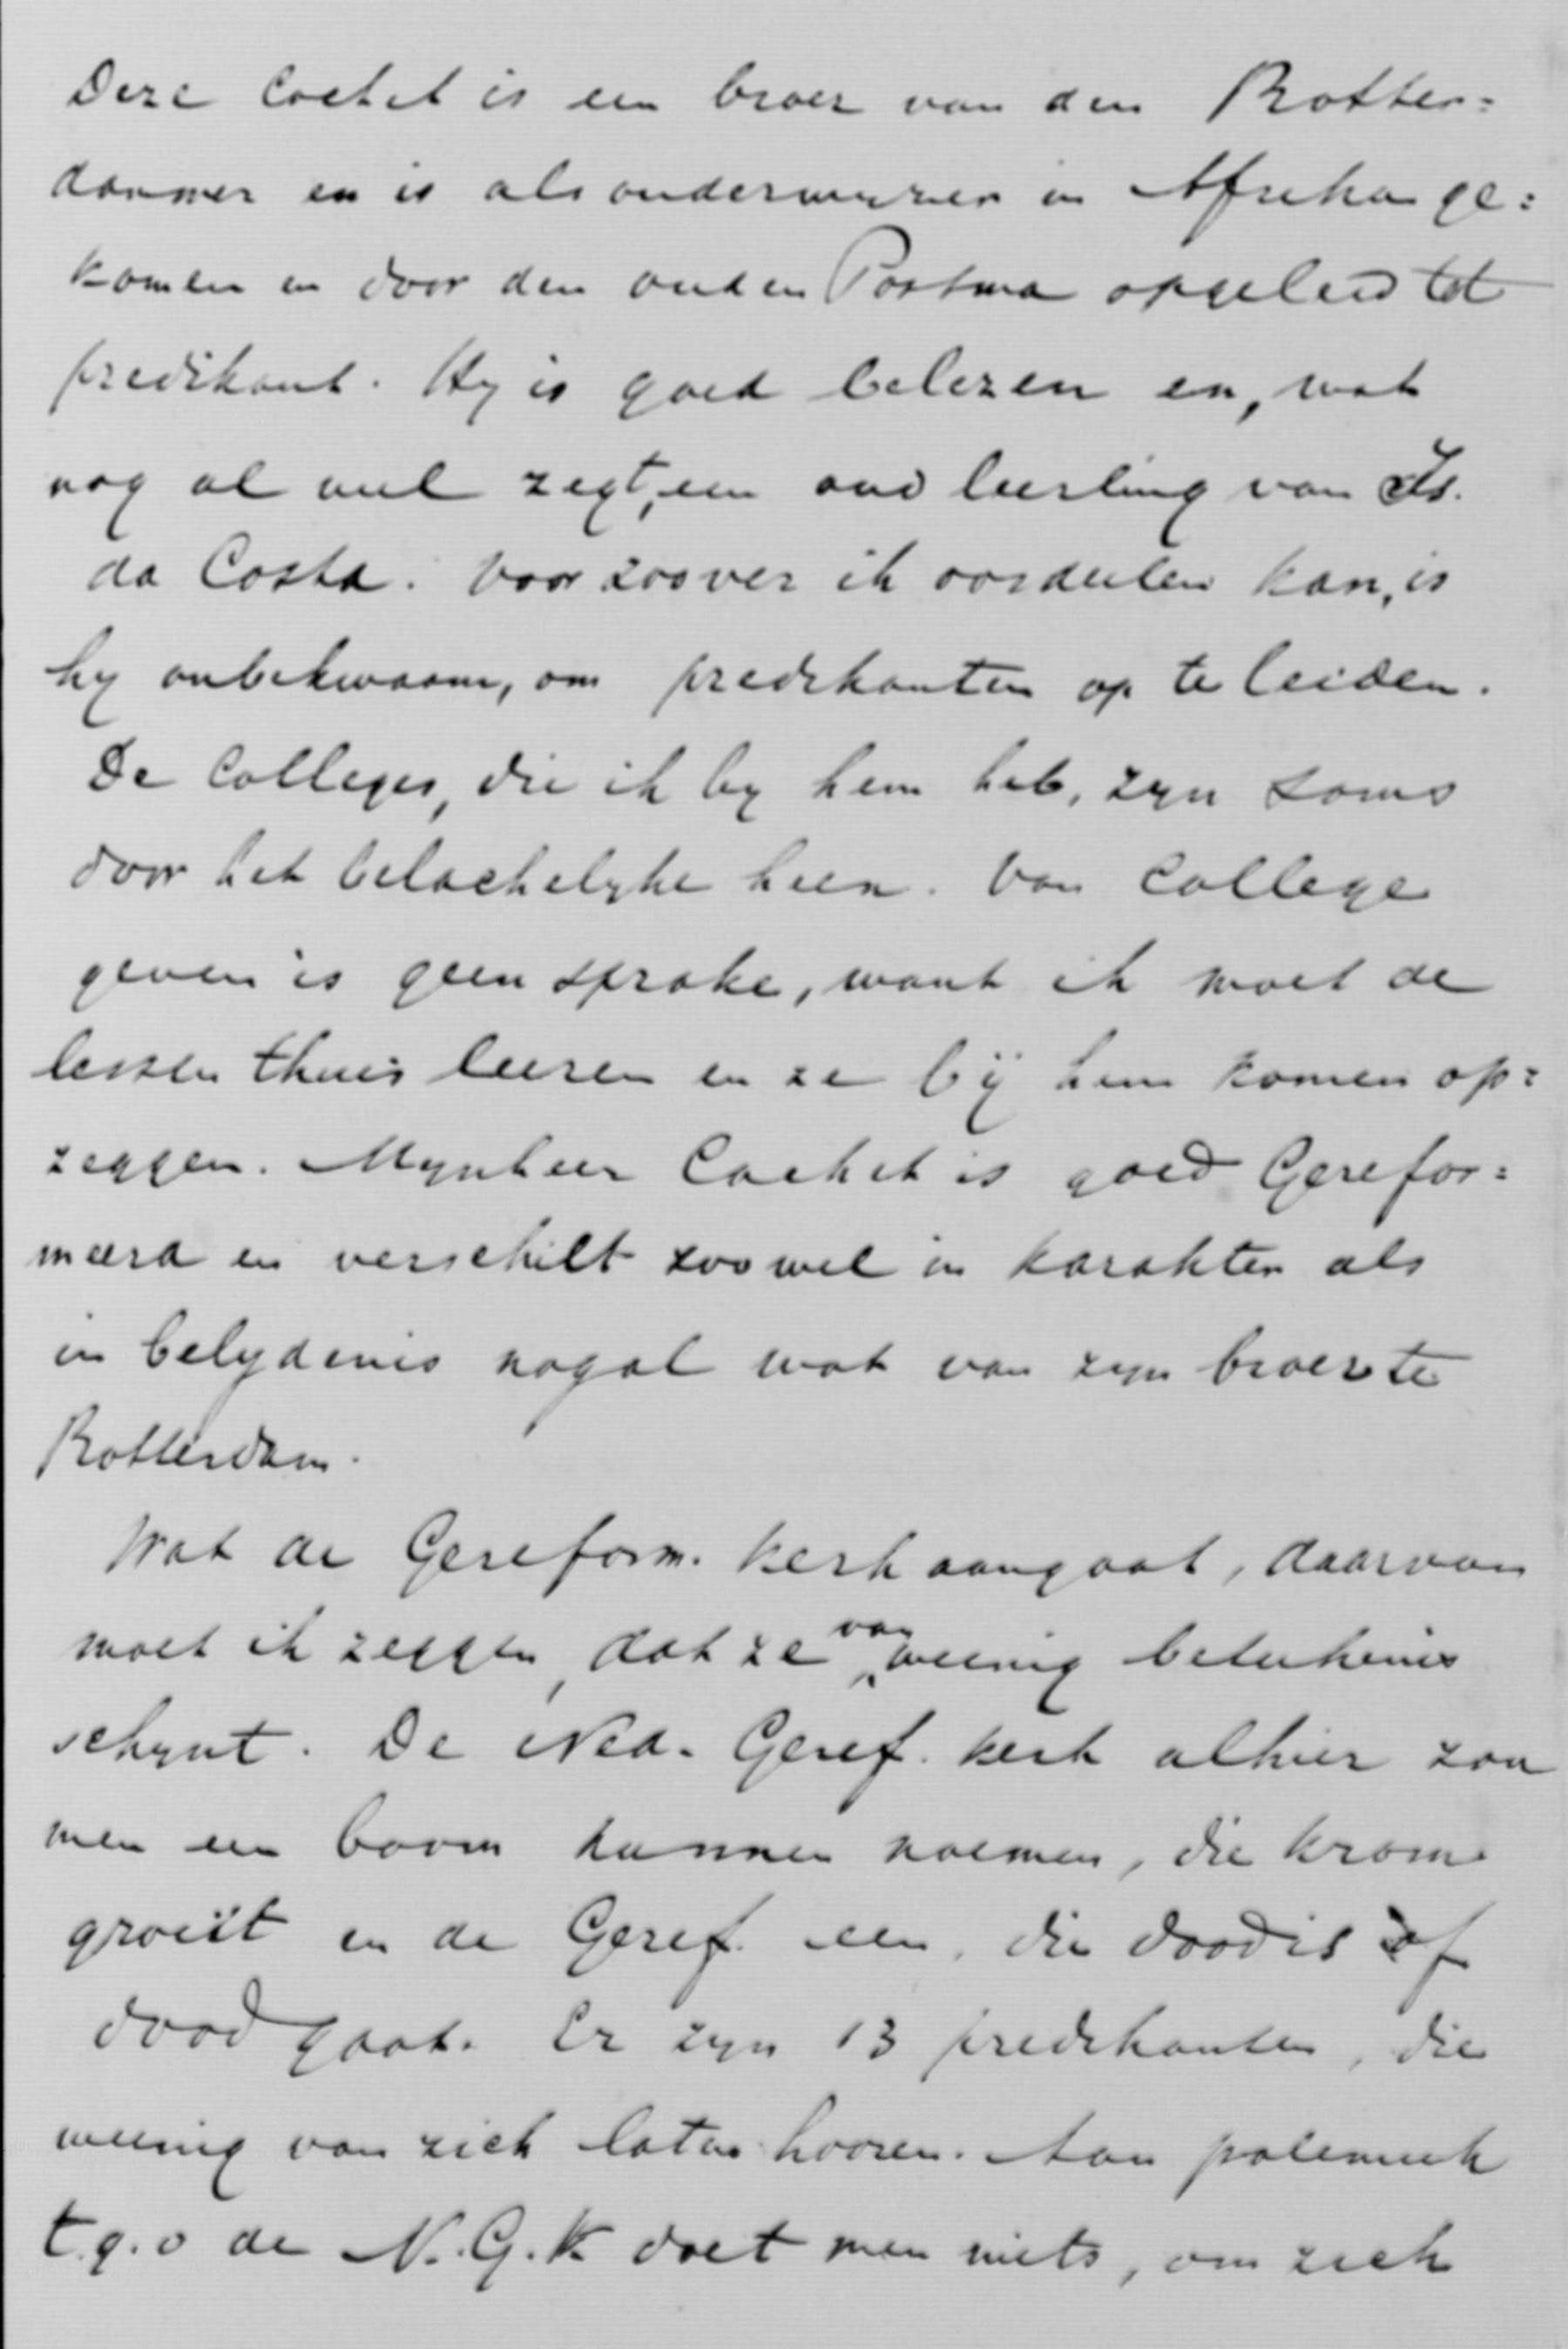 Deze Cachet is een broer van den Rotter=
dammer en is als onderwyzer in Afrika ge=
komen en door den ouden Postma opgeleid tot
predikant. Hy is goed belezen en, wat
nog al veel zegt, een oud leerling van Is.
da Costa. Voor zoover ik oordeelen kan, is
hy onbekwaam, om predikanten op te leiden.
De Colleges, die ik by hem heb, zyn soms
door het belachelyke heen. Van College
geven is geen sprake, want ik moet de
lessen thuis leeren en ze bij hem komen op=
zeggen. Mynheer Cachet is goed Gerefor=
meerd en verschilt zoowel in karakter als
in belydenis nogal wat van zyn broer te
Rotterdam.
Wat de Gereform. kerk aangaat, daarvan
moet ik zeggen, dat ze van weinig beteekenis
schynt. De Ned. Geref. kerk alhier zou
men een boom kunnen noemen, die krom
groeit en de Geref. een, die dood is of
dood gaat. Er zyn 13 predikanten, die
weinig van zich laten hooren. Aan polemiek
t.g.o de N.G.K. doet men niets, om zich